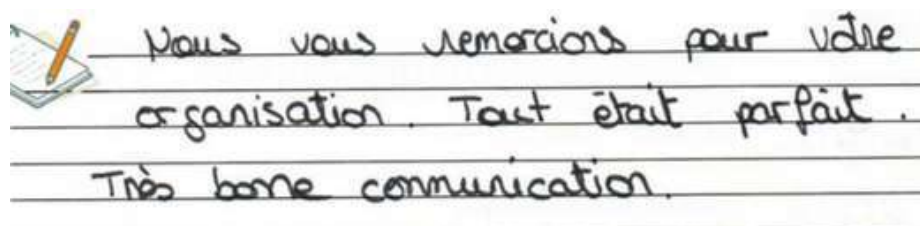 Nous vous remercions pour votre
organisation. Tout était parfait.
Très bonne communication.